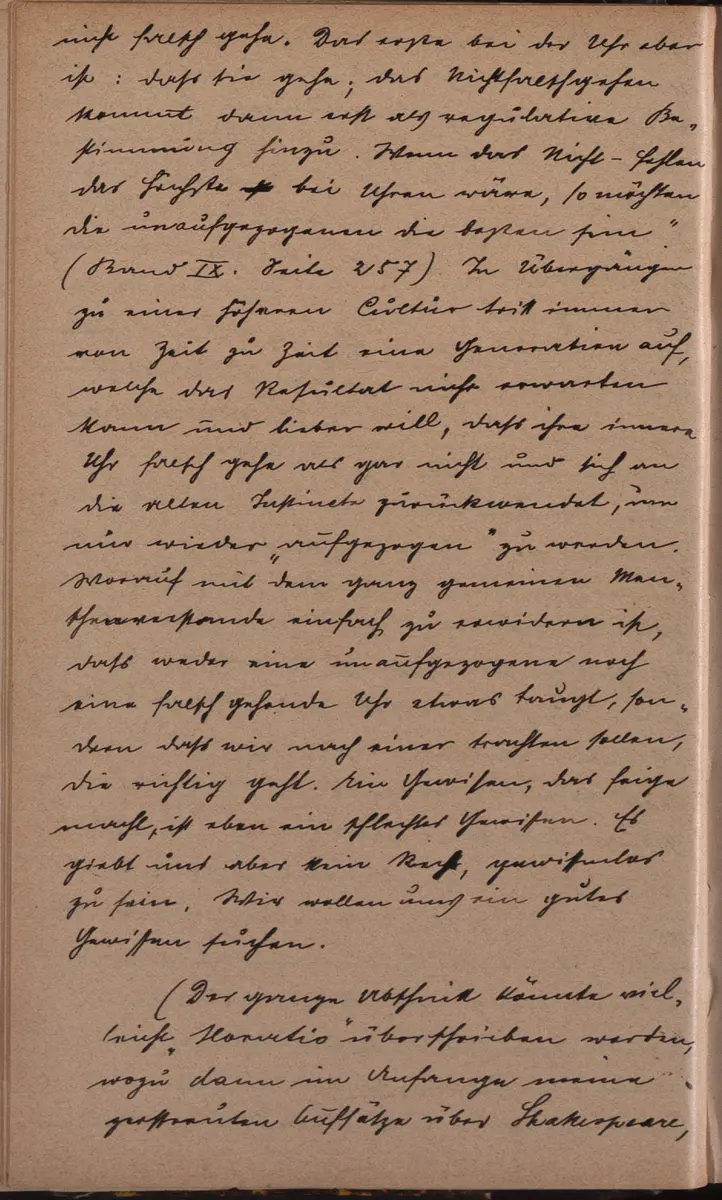 nicht falsch gehe. Das erste bei der Uhr aber
ist : dass sie gehe; das Nichtfalschgehen
kommt dann erst als regulative Be„
stimmung hinzu. Wenn das Nicht-fehlen
das Höchste bei Uhren wäre, so möchten
die unaufgezogenen die besten sein"
(Band IX. Seite 257) In Übergängen
zu einer höheren Cultur tritt immer
von Zeit zu Zeit eine Generation auf,
welche das Resultat nicht erwarten
kann und lieber will, dass ihre innere
Uhr falsch gehe als gar nicht und sich an
die alten Instincte zurückwendet, um
nur wieder „aufgezogen" zu werden.
Worauf mit dem ganz gemeinen Men„
schenverstande einfach zu erwidern ist,
dass weder eine unaufgezogene noch
eine falsch gehende Uhr etwas taugt, son„
dern dass wir nach einer trachten sollen,
die richtig geht. Ein Gewissen, das feige
macht, ist eben ein schlechtes Gewissen. Es
giebt uns aber kein Recht, gewissenlos
zu sein. Wir wollen uns ein gutes
Gewissen suchen.
(Der ganze Abschnitt könnte viel„
leicht „Horatio" überschrieben werden,
wozu dann im Anfange meine
zerstreuten Aufsätze über Shakespeare,